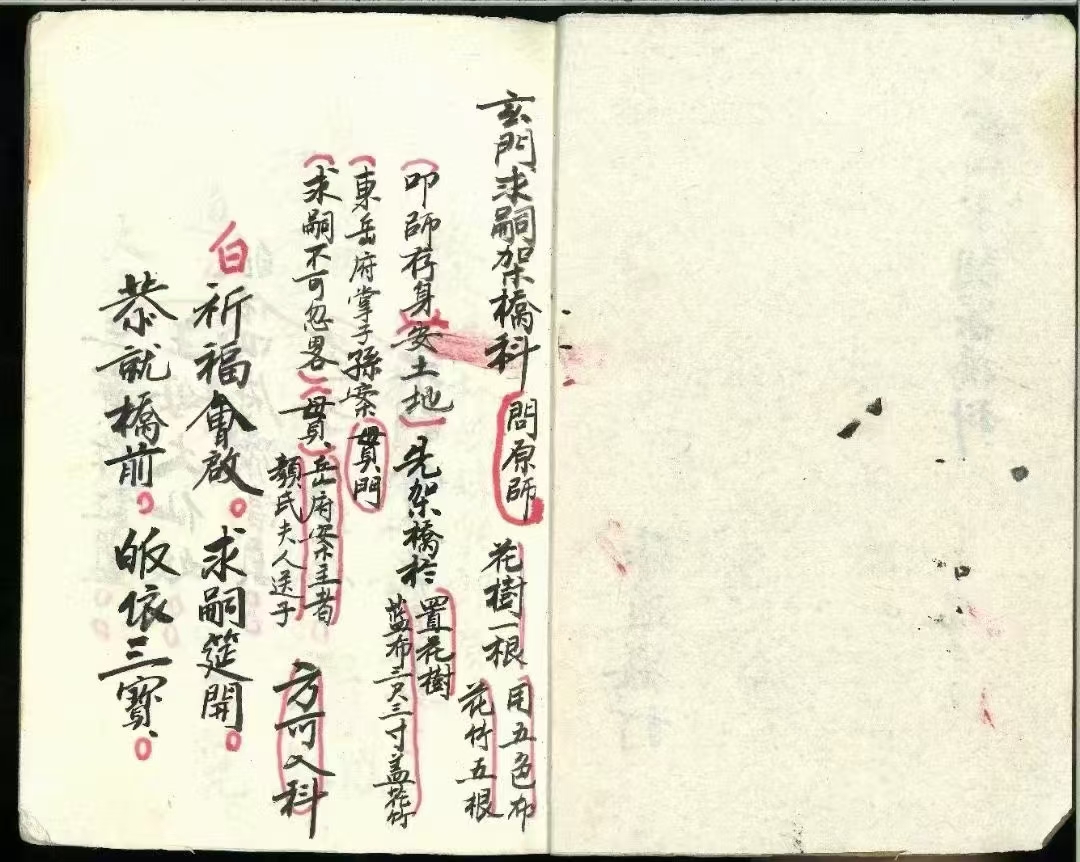 玄門求嗣架橋科 問原師 花樹一根 用五色布 花竹五根
叩師存身安土地 先架橋於 置花樹 蓝布三尺三寸盖花竹
東岳府掌子孫案 貫門
求嗣不可忽畧 岳府案主者 顏氏夫人送子 方可入科
白 祈福會啟。求嗣筵開。
恭就橋前。皈依三寶。